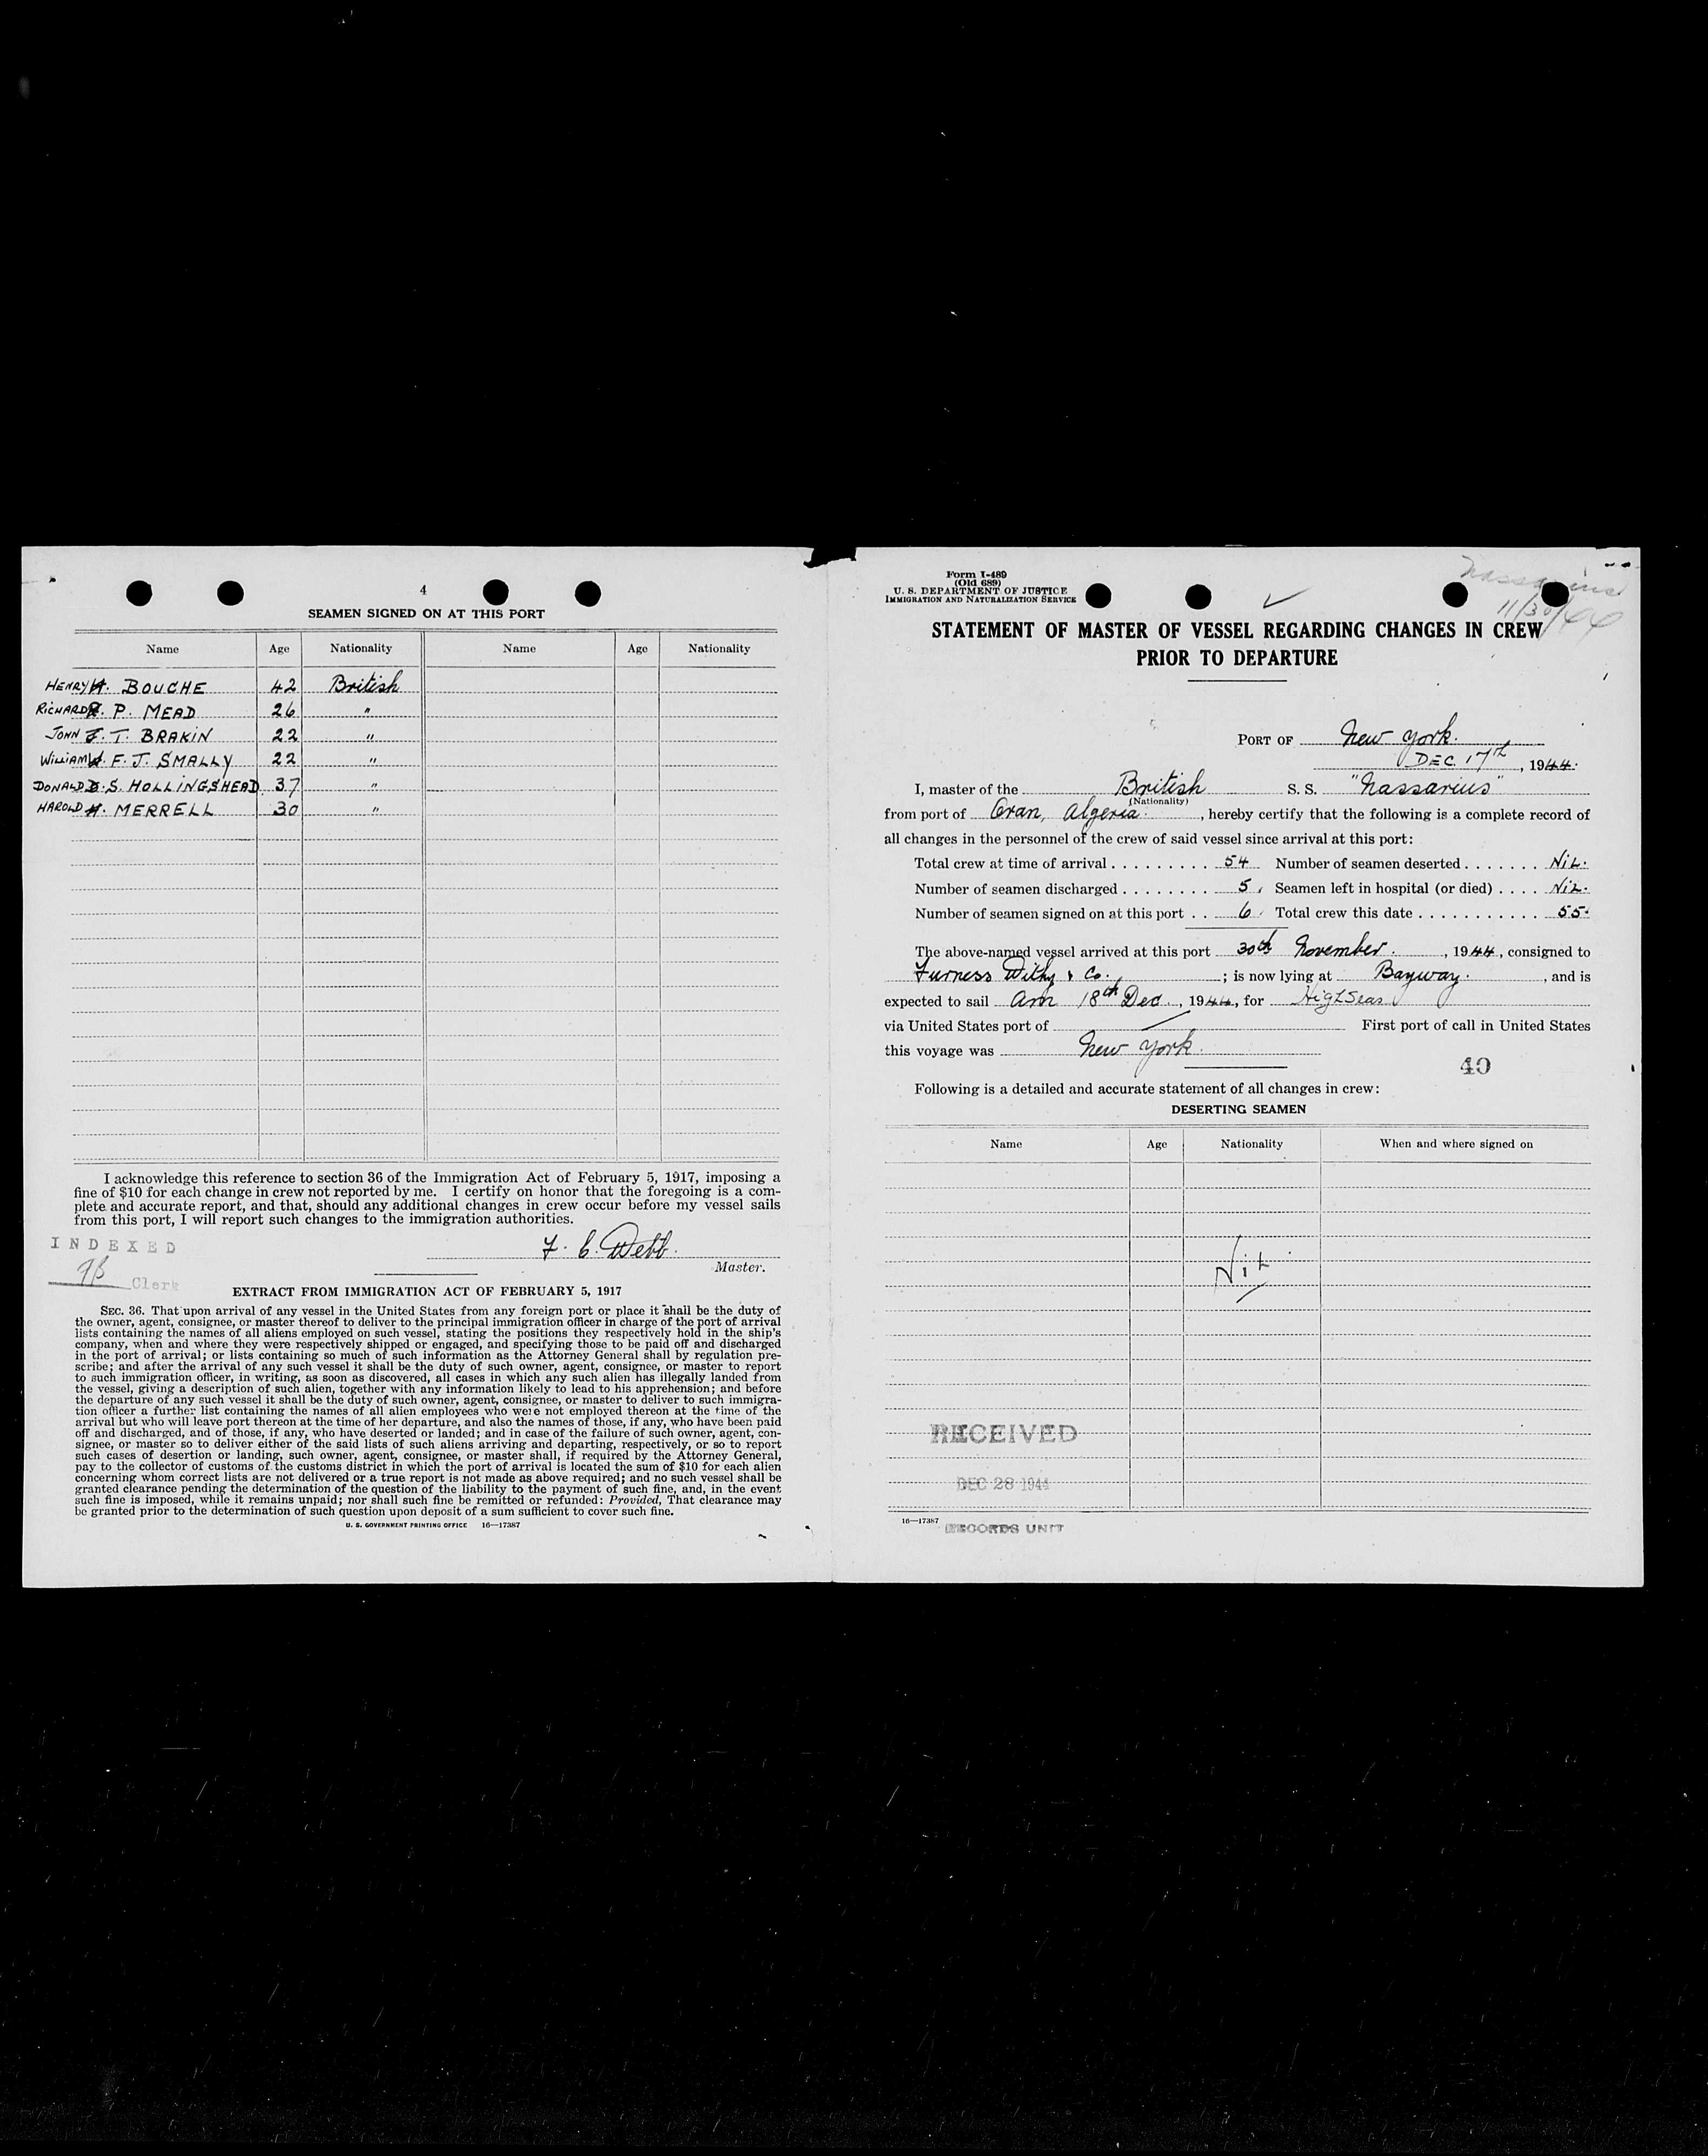 4
SEAMEN SIGNED ON AT THIS PORT
Name Age Nationality Name Age Nationality
HENRY H. BOUCHE 42 British
RICHARD R. P. MEAD 26 "
JOHN J. T. BRAKIN 22 "
WILLIAM W. F. J. SMALLY 22 "
DONALD D. S. HOLLINGSHEAD 37 "
HAROLD H. MERRELL 30 "
I acknowledge this reference to section 36 of the Immigration Act of February 5, 1917, imposing a
fine of $10 for each change in crew not reported by me. I certify on honor that the foregoing is a com-
plete and accurate report, and that, should any additional changes in crew occur before my vessel sails
from this port, I will report such changes to the immigration authorities.
INDEXED
F. C. Webb.
Clerk
Master.
EXTRACT FROM IMMIGRATION ACT OF FEBRUARY 5, 1917
SEC. 36. That upon arrival of any vessel in the United States from any foreign port or place it shall be the duty of
the owner, agent, consignee, or master thereof to deliver to the principal immigration officer in charge of the port of arrival
lists containing the names of all aliens employed on such vessel, stating the positions they respectively hold in the ship's
company, when and where they were respectively shipped or engaged, and specifying those to be paid off and discharged
in the port of arrival; or lists containing so much of such information as the Attorney General shall by regulation pre-
scribe; and after the arrival of any such vessel it shall be the duty of such owner, agent, consignee, or master to report
to such immigration officer, in writing, as soon as discovered, all cases in which any such alien has illegally landed from
the vessel, giving a description of such alien, together with any information likely to lead to his apprehension; and before
the departure of any such vessel it shall be the duty of such owner, agent, consignee, or master to deliver to such immigra-
tion officer a further list containing the names of all alien employees who were not employed thereon at the time of the
arrival but who will leave port thereon at the time of her departure, and also the names of those, if any, who have been paid
off and discharged, and of those, if any, who have deserted or landed; and in case of the failure of such owner, agent, con-
signee, or master so to deliver either of the said lists of such aliens arriving and departing, respectively, or so to report
such cases of desertion or landing, such owner, agent, consignee, or master shall, if required by the Attorney General,
pay to the collector of customs of the customs district in which the port of arrival is located the sum of $10 for each alien
concerning whom correct lists are not delivered or a true report is not made as above required; and no such vessel shall be
granted clearance pending the determination of the question of the liability to the payment of such fine, and, in the event
such fine is imposed, while it remains unpaid; nor shall such fine be remitted or refunded: Provided, That clearance may
be granted prior to the determination of such question upon deposit of a sum sufficient to cover such fine.
U. S. GOVERNMENT PRINTING OFFICE 16—17387
Form I-489
(Old 689)
U. S. DEPARTMENT OF JUSTICE
IMMIGRATION AND NATURALIZATION SERVICE
Nassarius
11/30/44
STATEMENT OF MASTER OF VESSEL REGARDING CHANGES IN CREW
PRIOR TO DEPARTURE
PORT OF New York.
DEC. 17th, 1944.
I, master of the British S. S. "Nassarius"
(Nationality)
from port of Oran, Algeria, hereby certify that the following is a complete record of
all changes in the personnel of the crew of said vessel since arrival at this port:
Total crew at time of arrival . . . . . . . . . . 54 Number of seamen deserted . . . . . . . NIL.
Number of seamen discharged . . . . . . . . 5 Seamen left in hospital (or died) . . . . NIL.
Number of seamen signed on at this port . . 6 Total crew this date . . . . . . . . . . . . 55.
The above-named vessel arrived at this port 30th November, 1944, consigned to
Furness Withy & Co.; is now lying at Bayway, and is
expected to sail am 18th Dec., 1944, for High Seas
via United States port of — First port of call in United States
this voyage was New York.
40
Following is a detailed and accurate statement of all changes in crew:
DESERTING SEAMEN
Name Age Nationality When and where signed on
Nil
RECEIVED
DEC 28 1944
16—17387
RECORDS UNIT